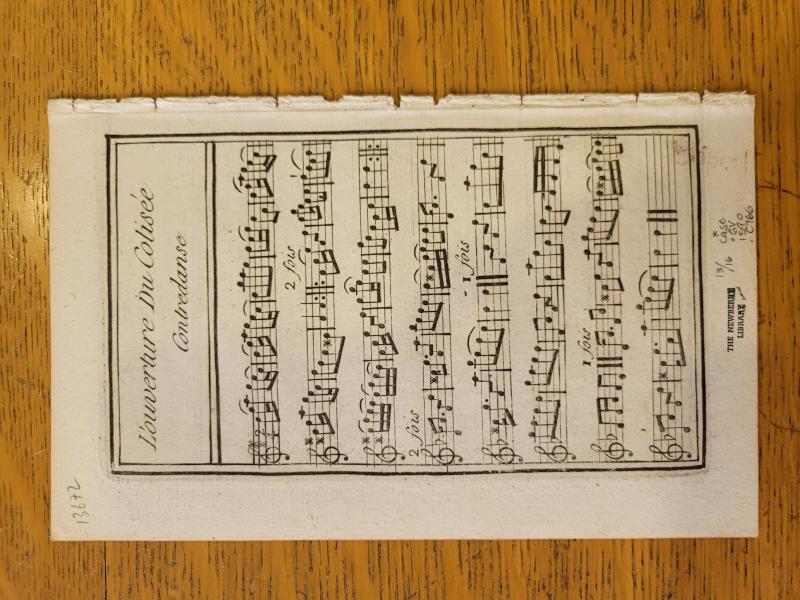 L'ouverture Du Colisée
Contredanse
2 fois
2 fois
1 fois
1 fois
13672
13/16
THE NEWBERRY
LIBRARY
Case
GV
1590